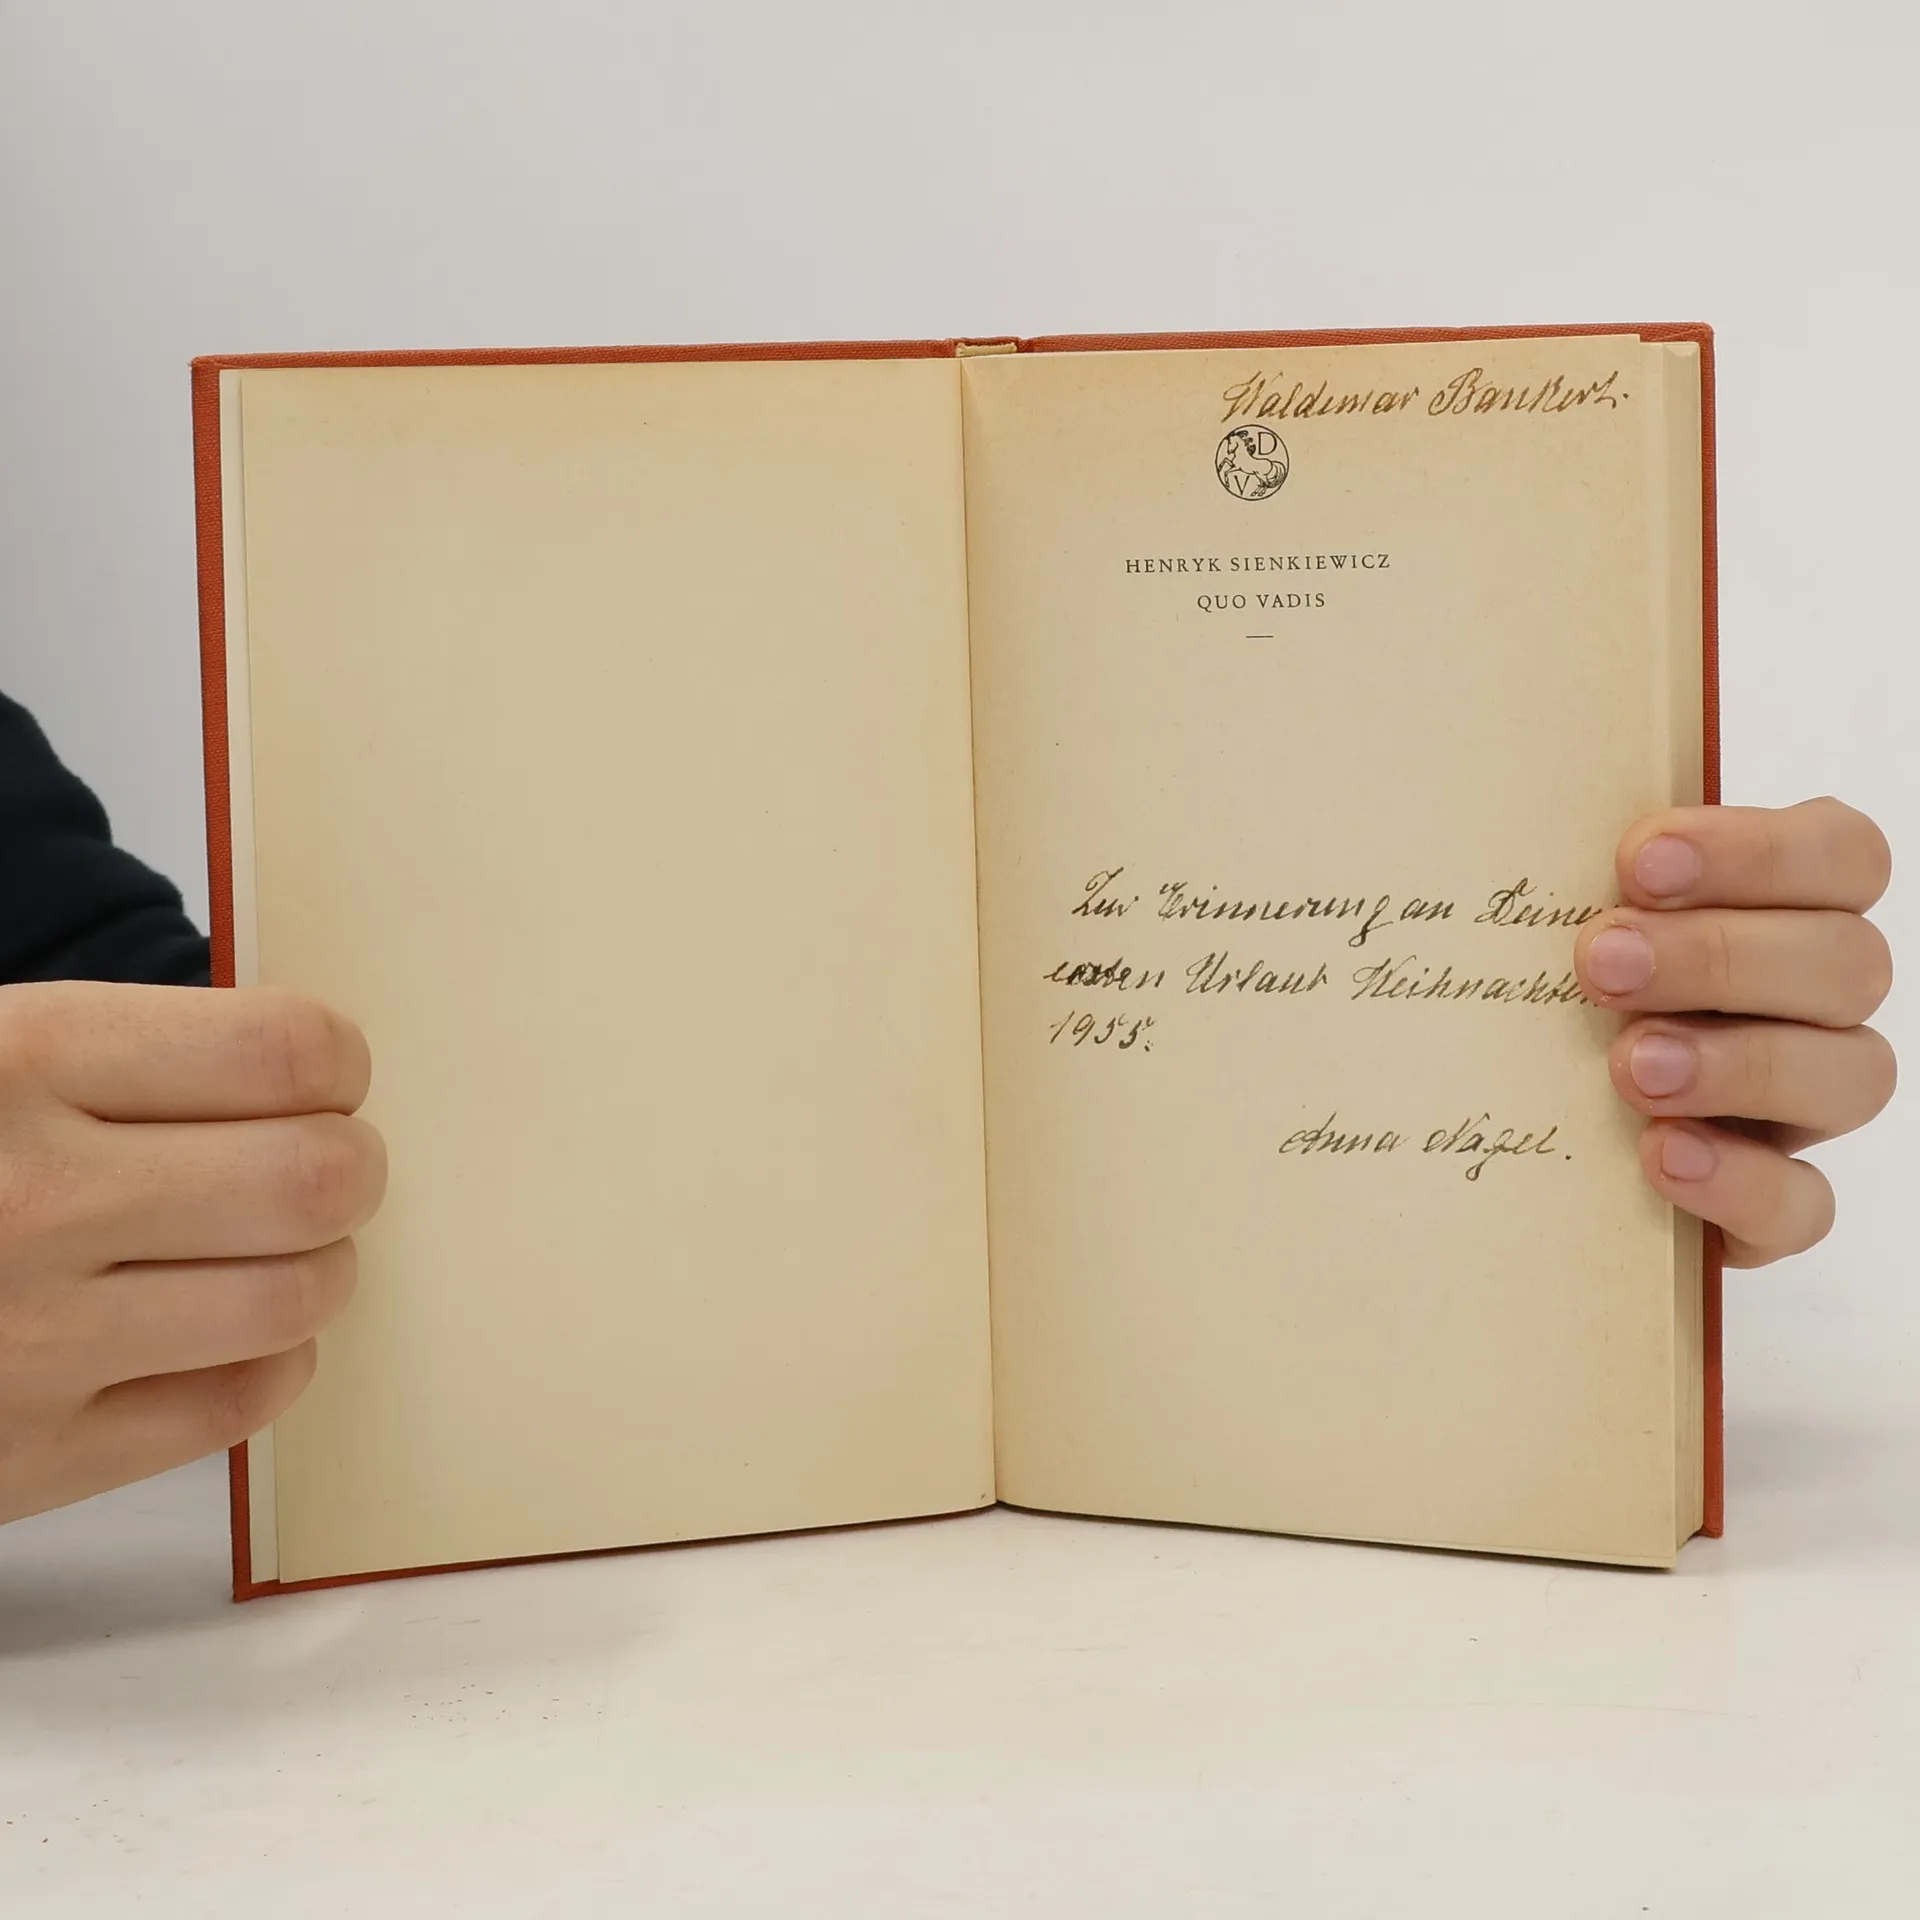 Waldemar Bankert.
D
V
HENRYK SIENKIEWICZ
QUO VADIS
Zur Erinnerung an Deine
ersten Urlaub Weihnachten
1955.
Anna Nagel.